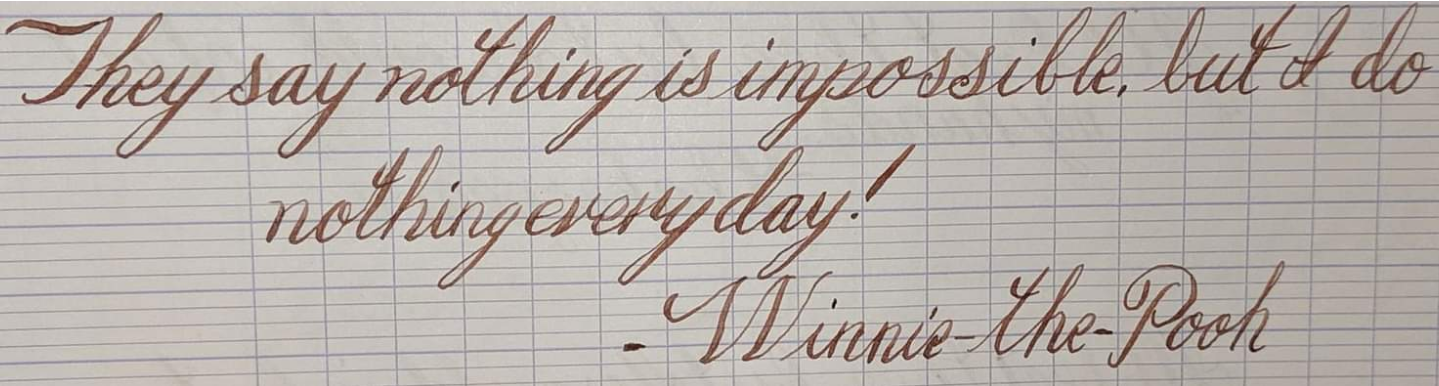 They say nothing is impossible, but I do
nothing every day!
- Winnie-the-Pooh